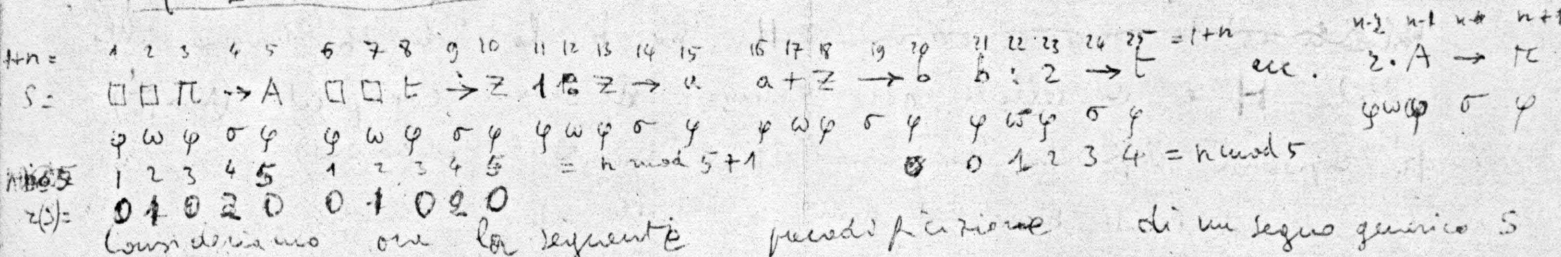 1+n = 1 2 3 4 5 6 7 8 9 10 11 12 13 14 15 16 17 18 19 20 21 22 23 24 25 = 1+n n-2 n-1 n n+1
S = □ □ π → A □ □ t → z 1 : z → a a + z → b b : 2 → t ecc. 2 · A → π
φ ω φ σ φ φ ω φ σ φ φ ω φ σ φ φ ω φ σ φ φ ω φ σ φ φ ω φ σ φ
1 2 3 4 5 1 2 3 4 5 = n mod 5 + 1 0 0 1 2 3 4 = n mod 5
z(S) = 0 1 0 2 0 0 1 0 2 0
Consideriamo ora la seguente di un segno generico S